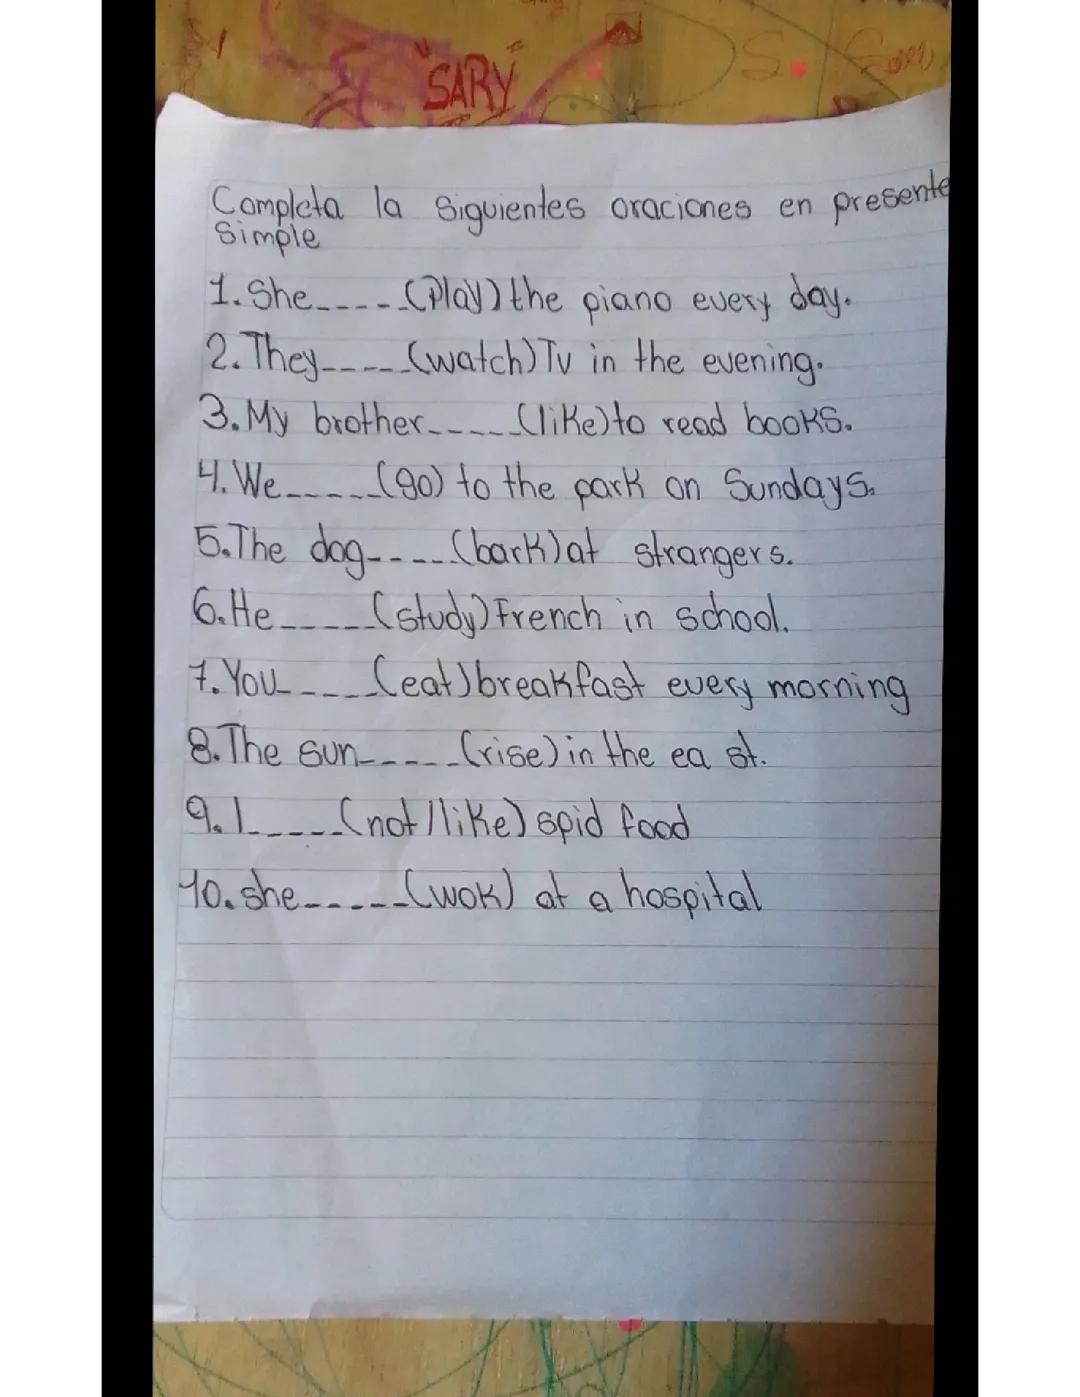 "SARY"
S.
Completa la siguientes oraciones en presente
simple
1. She_____(Play) the piano every day.
2. They_____(watch) Tv in the evening.
3. My brother_____(like) to read books.
4. We_____(go) to the park on Sundays.
5. The dog_____(bark) at strangers.
6. He_____(study) French in school.
7. You_____(eat) breakfast every morning
8. The sun_____(rise) in the ea st.
9. I_____(not/like) spid food
10. she_____(wok) at a hospital